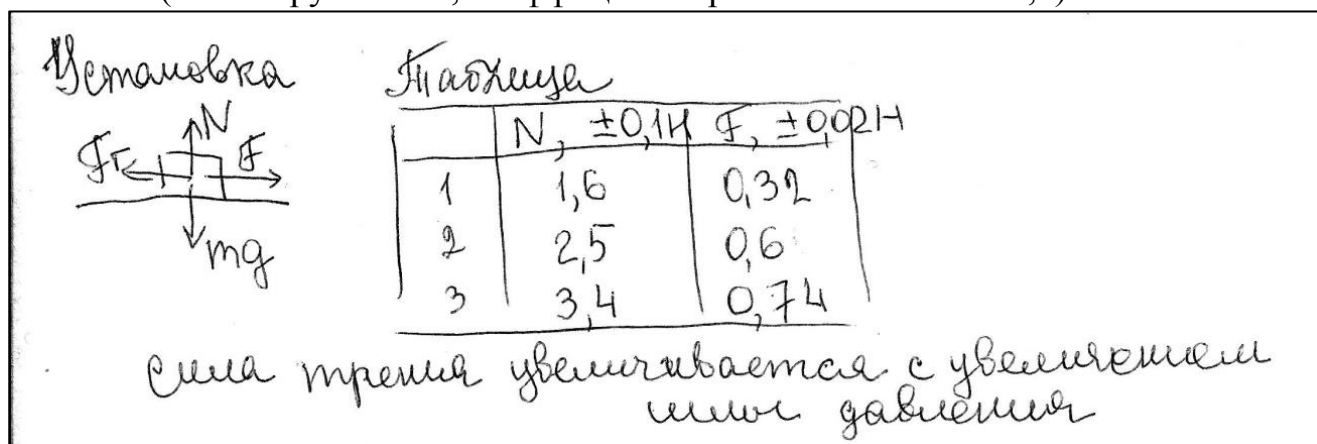 Установка Таблица
N
Fт F
mg
N, ±0,1Н F, ±0,02Н
1 1,6 0,32
2 2,5 0,6
3 3,4 0,74
сила трения увеличивается с увеличением
силы давления